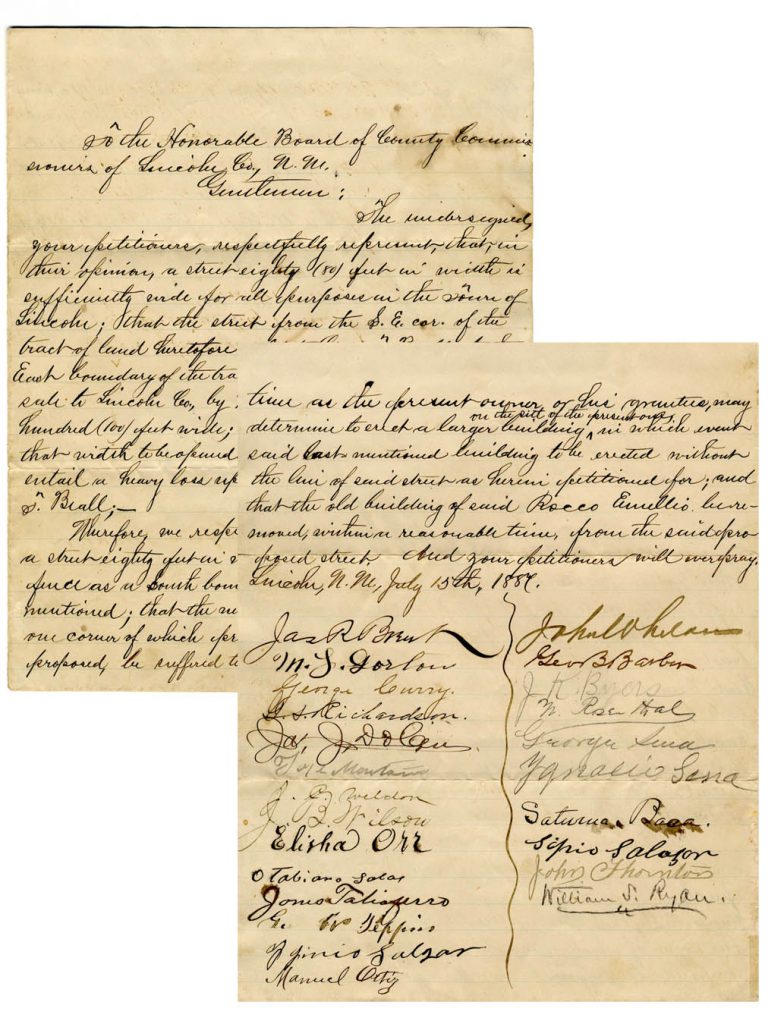 To the Honorable Board of County Commis-
sioners of Lincoln Co., N. M.
Gentlemen:
The undersigned,
your petitioners, respectfully represent, that, in
their opinion, a street eighty (80) feet in width is
sufficiently wide for all purposes in the Town of
Lincoln; that the street from the S. E. cor. of the
tract of land heretofore
East boundary of the tra
sale to Lincoln Co., by
hundred (100) feet wide;
that width to be opened
entail a heavy loss up
T. Beall;—
Wherefore, we respe
a street eighty feet in
and as a South boun
mentioned; that the
one corner of which pr
proposed, be suffered to
time as the present owner, or his grantees, may
determine to erect a larger building, on the site of the present one, in which event
said last mentioned building to be erected without
the line of said street as herein petitioned for; and
that the old building of said Rocco Emellio be re-
moved, within a reasonable time, from the said pro-
posed street. And your petitioners will ever pray.
Lincoln, N. M., July 15th, 1887.
Jas R Brent
M. S.
George Curry.
Richardson.
Jas. J. Dolan
Montano
J. C. Weldon
J. B. Wilson
Elisha Orr
Otabiano Salas
Jones Taliaferro
Yginio Salazar
Manuel Ortiz
John Whelan
Geo B Barber
J. K. Byers
W. Rosenthal
George Sena
Ygnacio Sena
Saturnino Baca.
Sipio Salazar
John C Thornton
William S. Ryan.